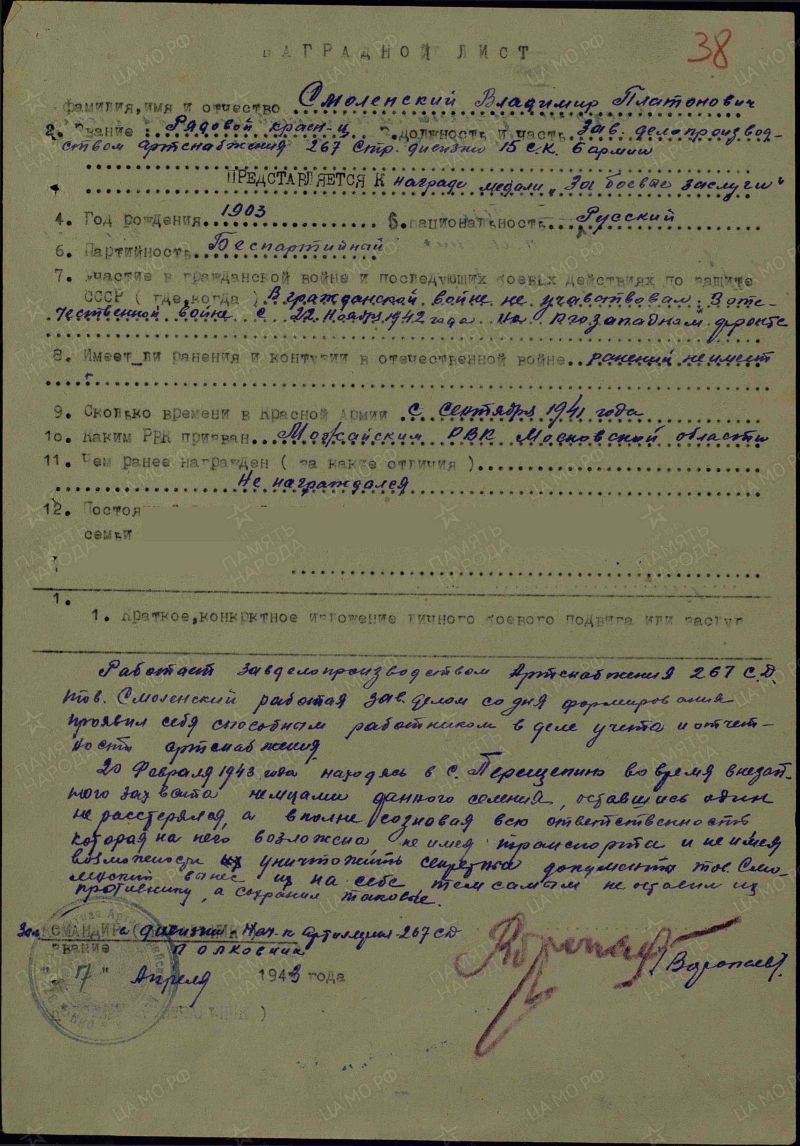 НАГРАДНОЙ ЛИСТ
38
Фамилия, имя и отчество Смоленский Владимир Платонович
2. Звание: Рядовой красн-ц 3. должность и часть Зав. делопроизвод-
ством артснабжения 267 Стр. дивизии 15 С.К. 6 армии
ПРЕДСТАВЛЯЕТСЯ К награде медали "За боевые заслуги"
4. Год рождения 1903 5. национальность Русский
6. Партийность Беспартийный
7. Участие в гражданской войне и последующих боевых действиях по защите
СССР ( где, когда ) В гражданской войне не учавствовал. В оте-
чественной войне с 22 ноября 1942 года на Югозападном фронте
8. Имеет ли ранения и контузии в отечественной войне ранений не имеет
9. Сколько времени в Красной Армии с сентября 1941 года
10. Каким РВК призван Можайским РВК Московской области
11. Чем ранее награжден ( за какие отличия )
Не награждался
12. Постоя
семьи
1.
1. Краткое, конкртное изложение личного боевого подвига или заслуг
Работает Завделопроизводством Артснабжения 267 С.Д.
тов. Смоленский работая зав. делом со дня формирования
проявил себя способным работником в деле учета и отчет-
ности артснабжения.
20 февраля 1943 года находясь в с. Перещепино во время внезап-
ного захвата немцами данного селения, оставшись один
не растерялся, а вполне сознавая всю ответственность
которая на него возложена, не имея транспорта и не имея
возможности уничтожить секретна документы тов. Смо-
ленский вынес их на себе, тем самым не оставил их
противнику, а сохранил таковые.
Зам КОМАНДИРа дивизии - Нач-к артиллерии 267 СД
звание ПОЛКОВНИК
"7" Апреля 1943 года
/Воропаев/